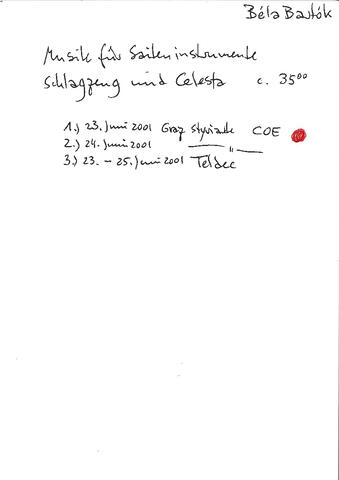 Béla Bartók
Musik für Saiteninstrumente
Schlagzeug und Celesta c. 35⁰⁰
1.) 23. Juni 2001 Graz Styriarte COE
2.) 24. Juni 2001 —— " ——
3.) 23. – 25. Juni 2001 Teldec